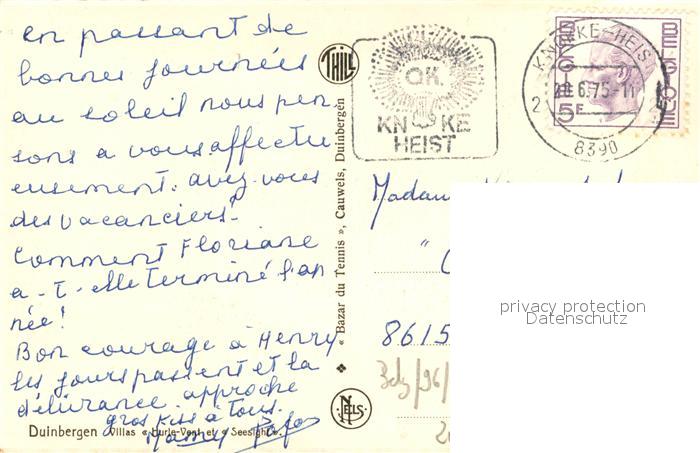 en passant de
bonnes journées
au soleil nous pen
sons a vous affectu
eusement. avez-vous
des vacanciers?
Comment Floriane
a-t-elle terminé l'an
née!
Bon courage à Henry
les jours passent et la
délivrance approche
gros kiss à tous.
Duinbergen Villas « Hurle-Vent et « Seesight ».
THILL
« Bazar du Tennis », Cauwels, Duinbergen
NELS
OK.
KNOKKE
HEIST
KNOKKE-HEIST
6.75-11
8390
BELGIE
BELGIQUE
5F
Madame
"
8615
Belg/96/
privacy protection
Datenschutz